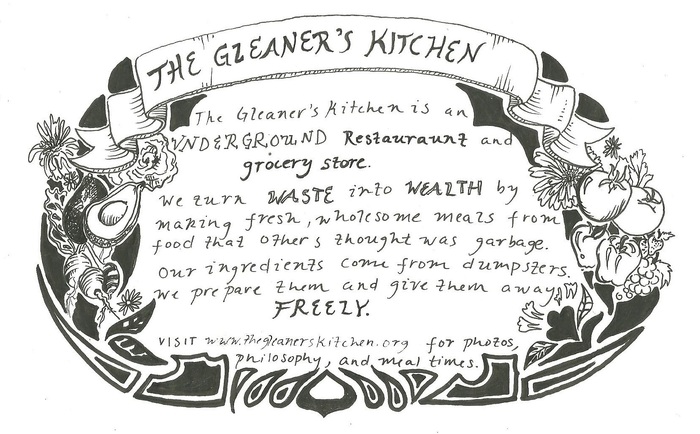 THE GLEANER'S KITCHEN
The Gleaner's Kitchen is an
UNDERGROUND Restauraunt and
grocery store.
We turn WASTE into WEALTH by
making fresh, wholesome meals from
food that other's thought was garbage.
Our ingredients come from dumpsters.
We prepare them and give them away
FREELY.
VISIT www.thegleanerskitchen.org for photos,
philosophy, and meal times.